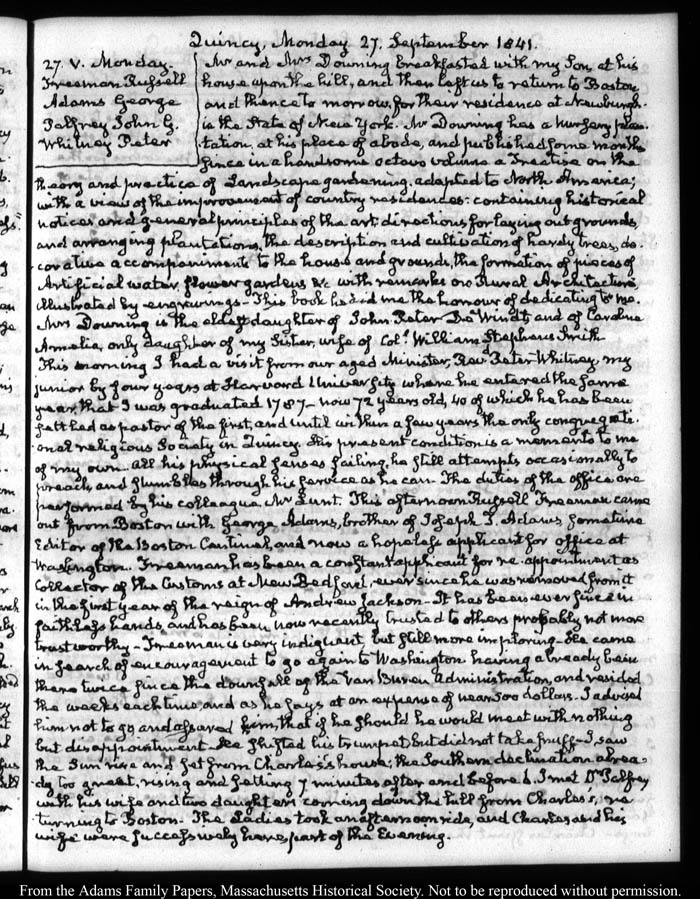 Quincy, Monday 27. September 1841.
27. V. Monday.
Freeman Russell
Adams George
Palfrey John G.
Whitney Peter
Mr and Mrs Downing breakfasted with my Son, at his
house upon the hill, and then left us to return to Boston
and thence to morrow, for their residence at Newburgh.
in the State of New York. Mr Downing has a nursery plan-
tation, at his place of abode, and published some months
since in a handsome octavo volume a Treatise on the
theory and practice of Landscape gardening. adapted to North America;
with a view of the improvement of country residences: containing historical
notices and general principles of the art: directions for laying out grounds,
and arranging plantations, the description and cultivation of hardy trees, de-
corative accompaniments to the house and grounds, the formation of pieces of
Artificial water, flower gardens &c with remarks on Rural Architecture
illustrated by engravings— This book he did me the honour of dedicating to me.
Mrs Downing is the eldest daughter of John Peter De Windt, and of Caroline
Amelia, only daughter of my Sister, wife of Col. William Stephens Smith
This morning I had a visit from our aged Minister, Revd Peter Whitney, my
junior by four years at Harvard University where he entered the same
year, that I was graduated 1787— now 72 years old, 40 of which he has been
settled as pastor of the first, and until within a few years the only congregati-
onal religious Society in Quincy. His present condition is a memento to me
of my own. all his physical senses failing, he still attempts occasionally to
preach, and stumbles through his service as he can. The duties of the office are
performed by his colleague Mr Lunt. This afternoon Russell Freeman came
out from Boston with George Adams, brother of Joseph T. Adams, sometime
Editor of the Boston Centinel, and now a hopeless applicant for office at
Washington. Freeman has been a constant applicant for re-appointment as
Collector of the Customs at New Bedford, ever since he was removed from it
in the first year of the reign of Andrew Jackson— It has been ever since in
faithless hands, and has been now recently trusted to others probably not more
trustworthy— Freeman is very indignant, but still more imploring— He came
in search of encouragement to go again to Washington having already been
there twice since the downfall of the Van Buren Administration, and resided
the weeks each time, and as he says at an expense of near 500 dollars. I advised
him not to go and assured him, that if he should he would meet with nothing
but disappointment— He shifted his trumpet but did not take snuff— I saw
the Sun rise and set from Charles's house; the Southern declination alrea-
dy too great, rising and setting 7 minutes after and before 6. I met Dr Palfrey
with his wife and two daughters coming down the hill from Charles's, re-
turning to Boston— The Ladies took an afternoon ride, and Charles and his
wife were successively here, part of the Evening.
From the Adams Family Papers, Massachusetts Historical Society. Not to be reproduced without permission.